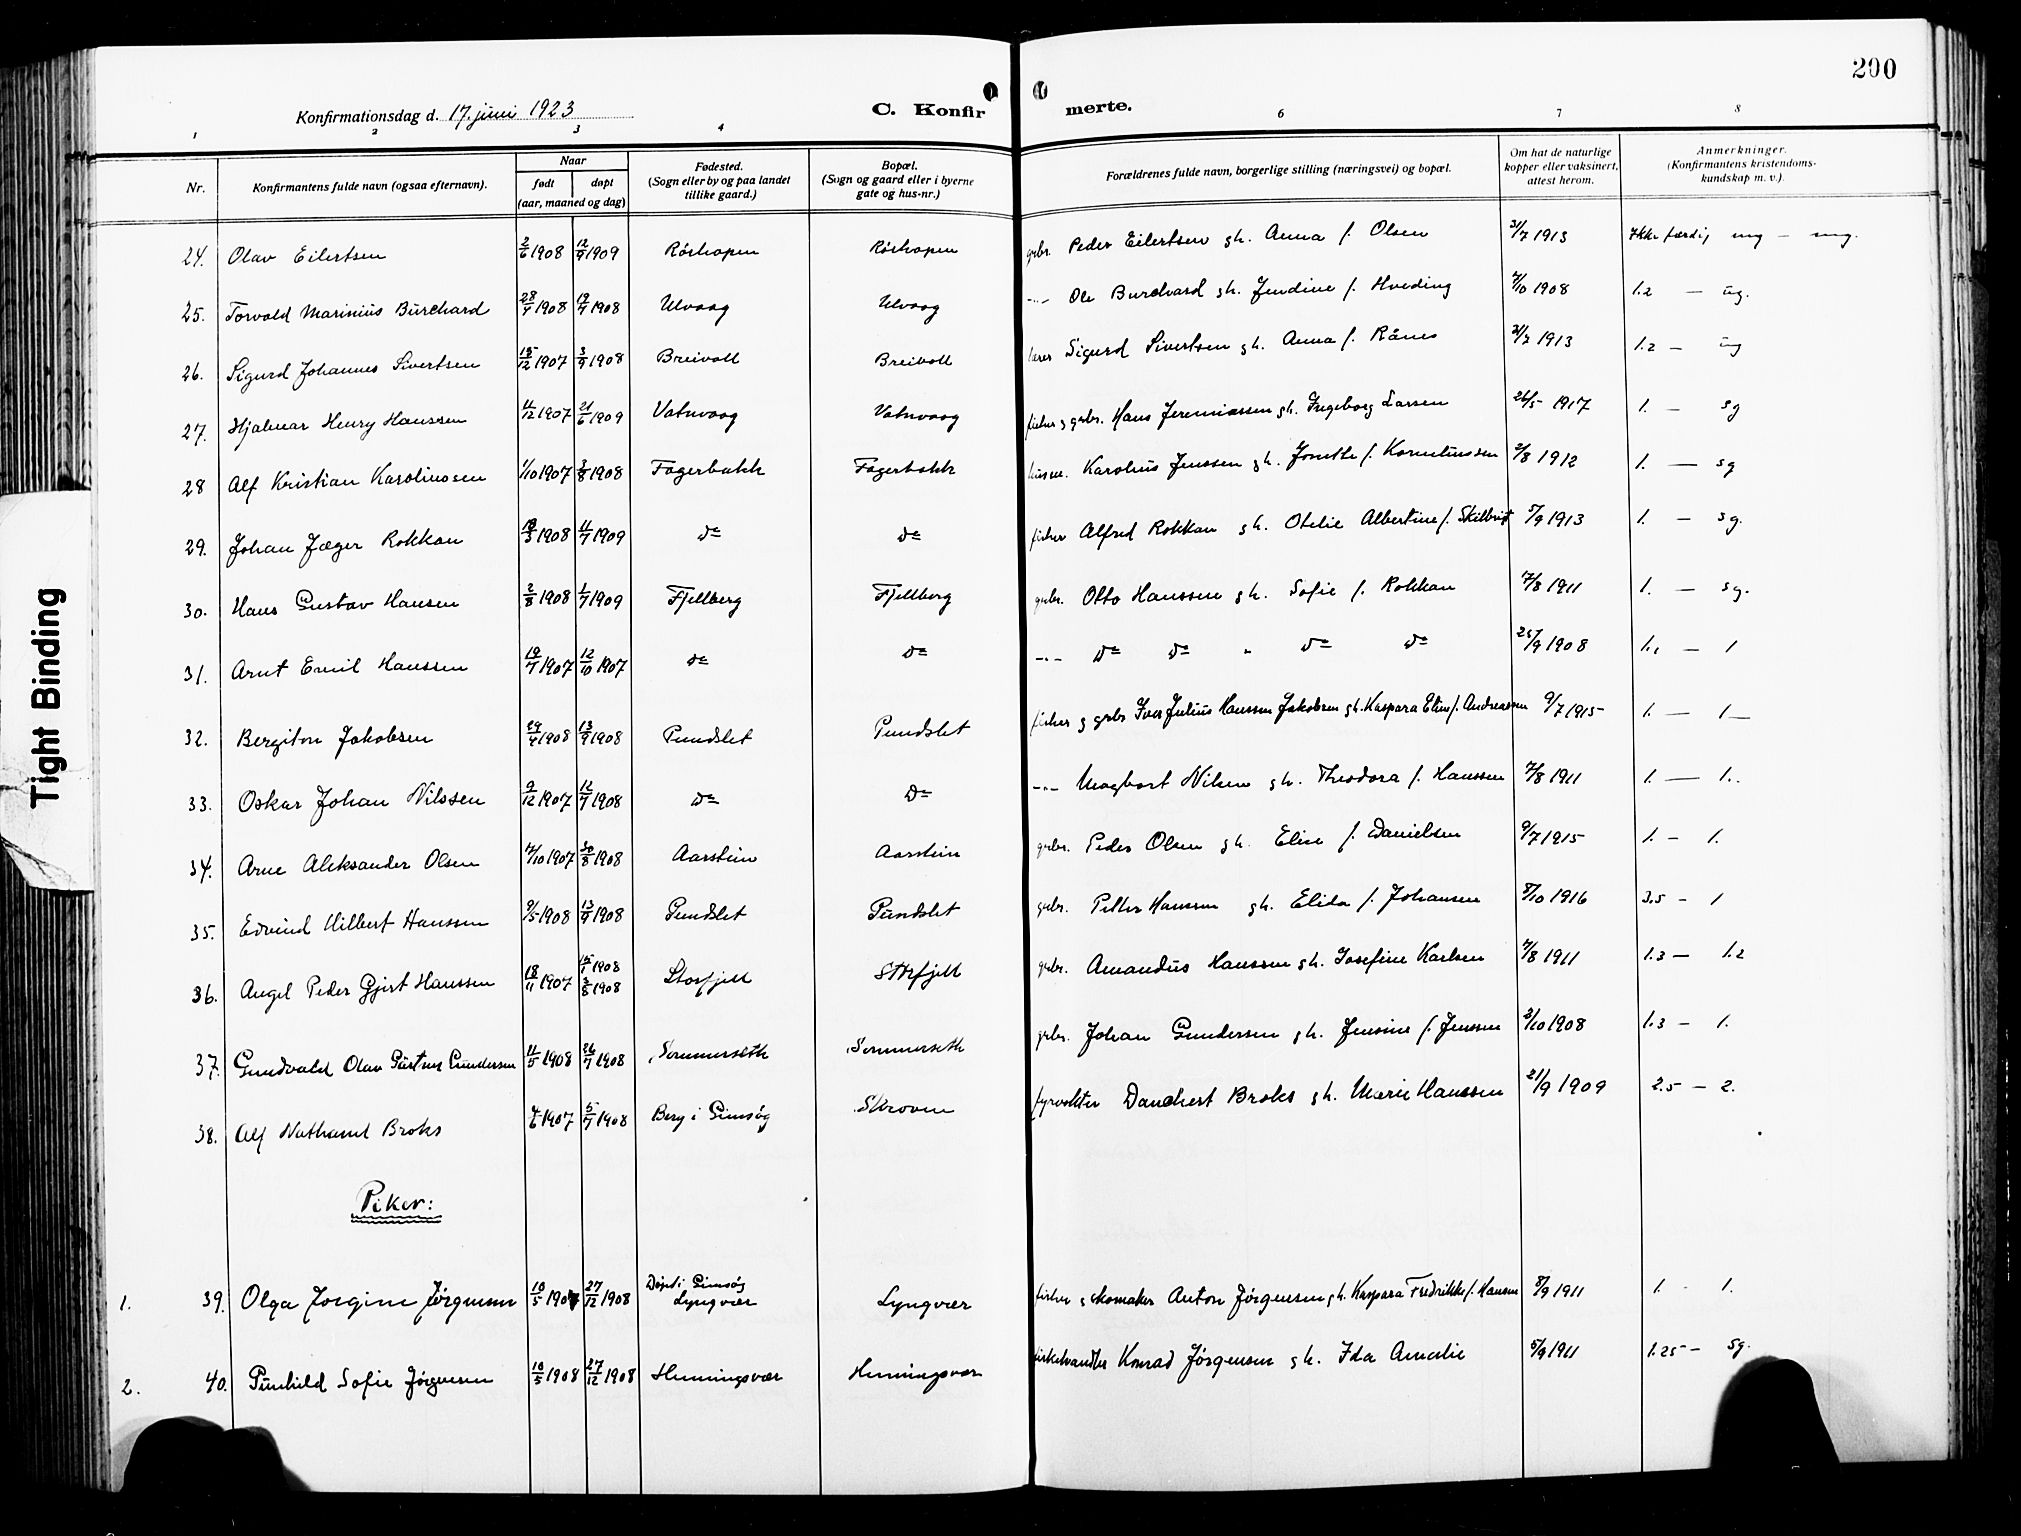 200
Konfirmationsdag d. 17. juni 1923
C. Konfir merte.
1 2 3 4 6 7 8
Nr. Konfirmantens fulde navn (ogsaa efternavn). Naar født døpt (aar, maaned og dag) Fødested. (Sogn eller by og paa landet tillike gaard.) Bopæl. (Sogn og gaard eller i byerne gate og hus-nr.) Forældrenes fulde navn, borgerlige stilling (næringsvei) og bopæl. Om hat de naturlige kopper eller vaksinert, attest herom. Anmerkninger. (Konfirmantens kristendoms-kundskap m. v.).
24. Olav Eilertsen 2/6 1908 12/9 1909 Rörhopen Rörhopen grbr. Peder Eilertsen gh. Anna f. Olsen 31/7 1913 Ikke færdig mg — mg.
25. Torvald Marinius Burchard 28/4 1908 19/7 1908 Ulvaag Ulvaag -"- Ole Burchard gh. Jendine f. Hveding 7/10 1908 1.2 — ug.
26. Sigurd Johannes Sivertsen 15/12 1907 3/9 1908 Breivoll Breivoll lærer Sigurd Sivertsen gh. Anna f. Rånes 31/7 1913 1.2 — ug
27. Hjalmar Henry Hanssen 11/12 1907 21/6 1909 Vatnvaag Vatnvaag fisker g grbr. Hans Jeremiassen gh. Ingeborg Larsen 26/5 1917 1. — sg
28 Alf Kristian Karoliussen 1/10 1907 3/8 1908 Fagerbakk Fagerbakk Karolius Jenssen gh. f. Korneliussen 2/8 1912 1. — sg
29. Johan Jæger Rokkan 19/3 1908 11/7 1909 do do fisker Alfred Rokkan gh. Otelie Albertine f. Skilbrigt 5/9 1913 1. — sg.
30. Hans Gustav Hansen 2/8 1908 1/7 1909 Fjellberg Fjellberg grbr. Otto Hanssen gh. Sofie f. Rokkan 7/8 1911 1. — sg.
31. Arnt Emil Hanssen 19/7 1907 12/10 1907 do do -"- do do " do do 25/9 1908 1. — 1
32. Bergiton Jakobsen 29/4 1908 13/9 1908 Pundslet Pundslet fisker g grbr Iver Julius Hanssen Jakobsen gh. Kaspara Elen f. Andreassen 9/7 1915 1. — 1 —
33. Oskar Johan Nilssen 9/12 1907 12/7 1908 do do -"- Magbart Nilsen gh. Theodora f. Hanssen 7/8 1911 1. — 1.
34. Arne Aleksander Olsen 17/10 1907 30/8 1908 Aarstein Aarstein grbr. Peder Olsen gh. Elise f. Danielsen 9/7 1915 1. — 1.
35. Edvind Hilbert Hanssen 9/5 1908 13/9 1908 Pundslet Pundslet grbr. Petter Hanssen gh. Elida f. Johansen 8/10 1916 3.5 — 1
36. Angel Peder Gjert Hanssen 18/11 1907 15/1 1908 3/8 1908 Storfjell Storfjell grbr. Amandus Hanssen gh. Josefine Karlsen 7/8 1911 1.3 — 1.2
37. Gundvald Olav Gustav Gundersen 11/5 1908 26/7 1908 Sommerseth Sommerseth grbr. Johan Gundersen gh. Jensine f. Jenssen 2/10 1908 1.3 — 1.
38. Alf Nathanel Broks 4/6 1907 5/7 1908 Berg i Gimsøy Skroven fyrvokter Danchert Broks gh. Marie Hanssen 21/9 1909 2.5 — 2.
Piker:
1. 39. Olga Jorgine Jørgensen 10/5 1907 27/12 1908 Døpt i Gimsøy Lyngvær Lyngvær fisker g skomaker Anton Jørgensen gh. Kaspara Fredrikke f. Hansen 8/9 1911 1. - 1.
2. 40. Gunhild Sofie Jørgensen 10/5 1908 27/12 1908 Henningsvær Henningsvær Konrad Jørgensen gh. Ida Amalie 5/9 1911 1.25 — sg.
Tight Binding